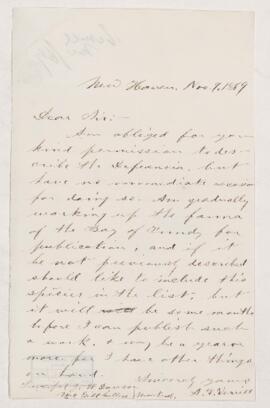 New Haven, Nov. 9, 1869
Dear Sir:—
Am obliged for your
kind permission to des-
cribe the Defrancia, but
have no immediate reason
for doing so. Am gradually
working up the fauna
of the Bay of Fundy for
publication, and if it
be not previously described
should like to include this
species in the list, but
it will be some months
before I can publish such
a work, & may be a year or
more, for I have other things
on hand.
Sincerely yours
A. E. Verrill
Principal J. W. Dawson
McGill College Montreal